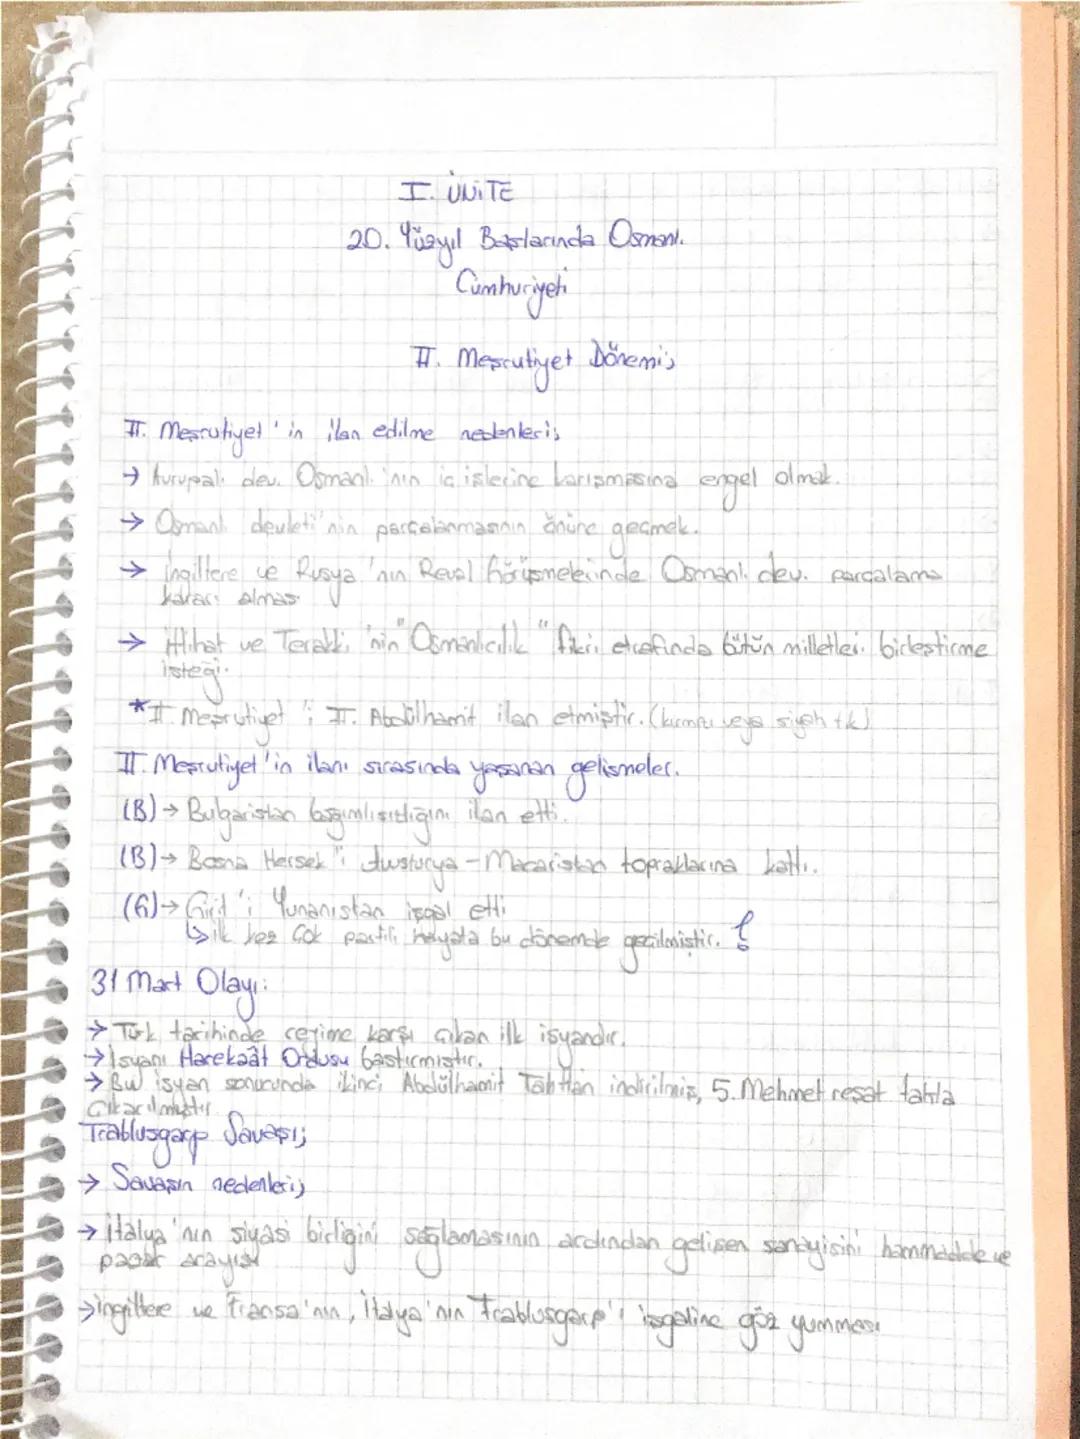 I. ÜNİTE
20. Yüzyıl Başlarında Osmanlı
Cumhuriyeti
II. Meşrutiyet Dönemi;
II. Meşrutiyet'in ilan edilme nedenleri;
→ Avrupalı dev. Osmanlı'nın iç işlerine karışmasına engel olmak.
→ Osmanlı devleti'nin parçalanmasının önüne geçmek.
→ İngiltere ve Rusya'nın Reval Görüşmelerinde Osmanlı dev. parçalama
kararı alması
→ İttihat ve Terakki'nin "Osmanlıcılık" fikri etrafında bütün milletleri birleştirme
isteği.
*II. Meşrutiyet'i II. Abdülhamit ilan etmiştir. (kırmızı veya siyah tk)
II. Meşrutiyet'in ilanı sırasında yaşanan gelişmeler.
(B) → Bulgaristan bağımlısızlığını ilan etti.
(B) → Bosna Hersek'i Avusturya - Macaristan topraklarına kattı.
(G) → Girit'i Yunanistan işgal etti
↳ ilk kez çok partili hayata bu dönemde geçilmiştir. !
31 Mart Olayı:
→ Türk tarihinde rejime karşı çıkan ilk isyandır.
→ İsyanı Harekaât Ordusu bastırmıştır.
→ Bu isyan sonucunda ikinci Abdülhamit Tahttan indirilmiş, 5. Mehmet reşat tahta
çıkarılmıştır
Trablusgarp Savaşı;
→ Savaşın nedenleri;
→ İtalya'nın siyasi birliğini sağlamasının ardından gelişen sanayisini hammadde ve
pazar arayışı
→ İngiltere ve Fransa'nın, İtalya'nın Trablusgarp'ı işgaline göz yumması